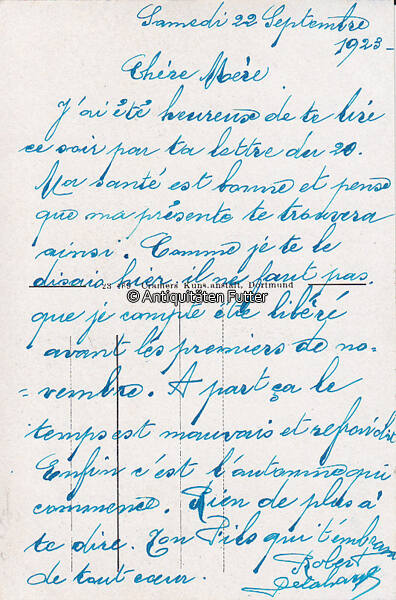 Samedi 22 Septembre
1923 -
Chère Mère
J'ai été heureux de te lire
ce soir par ta lettre du 20.
Ma santé est bonne et pense
que ma présente te trouvera
ainsi. Comme je te le
disais hier il ne faut pas
23 469 Cramers Kunstanstalt, Dortmund
© Antiquitäten Futter
que je compte être libéré
avant les premiers de no-
-vembre. A part ça le
temps est mauvais et refroidit
Enfin c'est l'automne qui
commence. Rien de plus à
te dire. Ton Fils qui t'embrasse
de tout cœur.
Robert
Delahaye